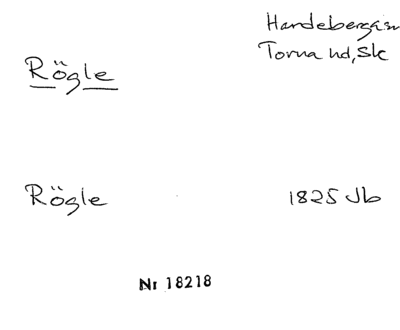 Hardeberga sn
Torna hd, Sk
Rögle
Rögle 1825 Jb
Nr 18218